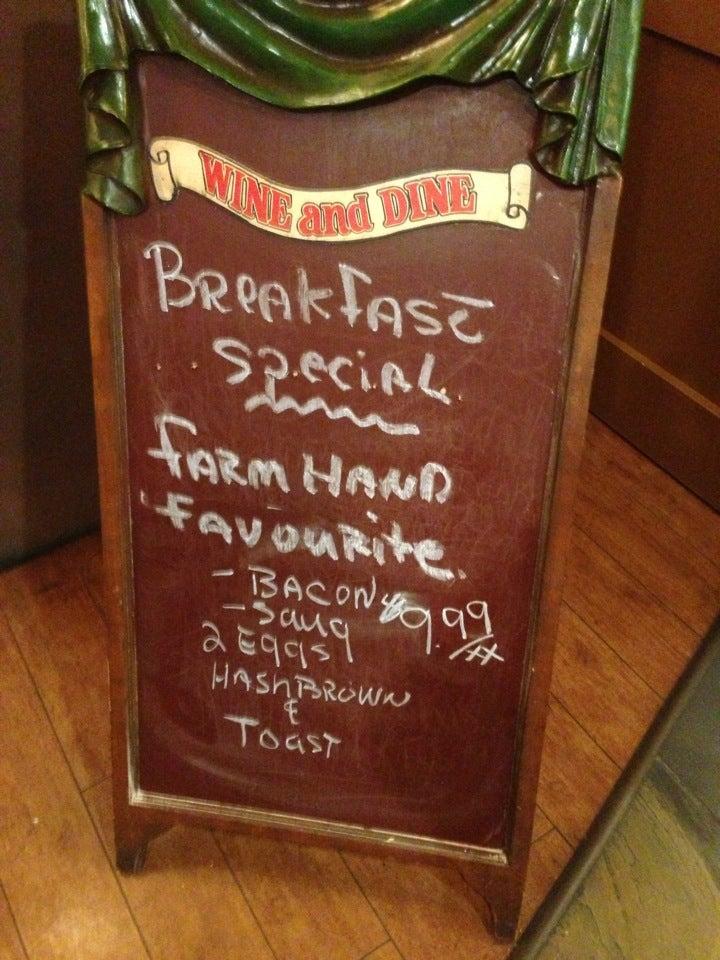 WINE and DINE
BREAKFAST
SPECIAL
FARM HAND
FAVOURITE.
- BACON $9.99/xx
- SAUG
2 EggS
HASHBROWN
&
TOAST